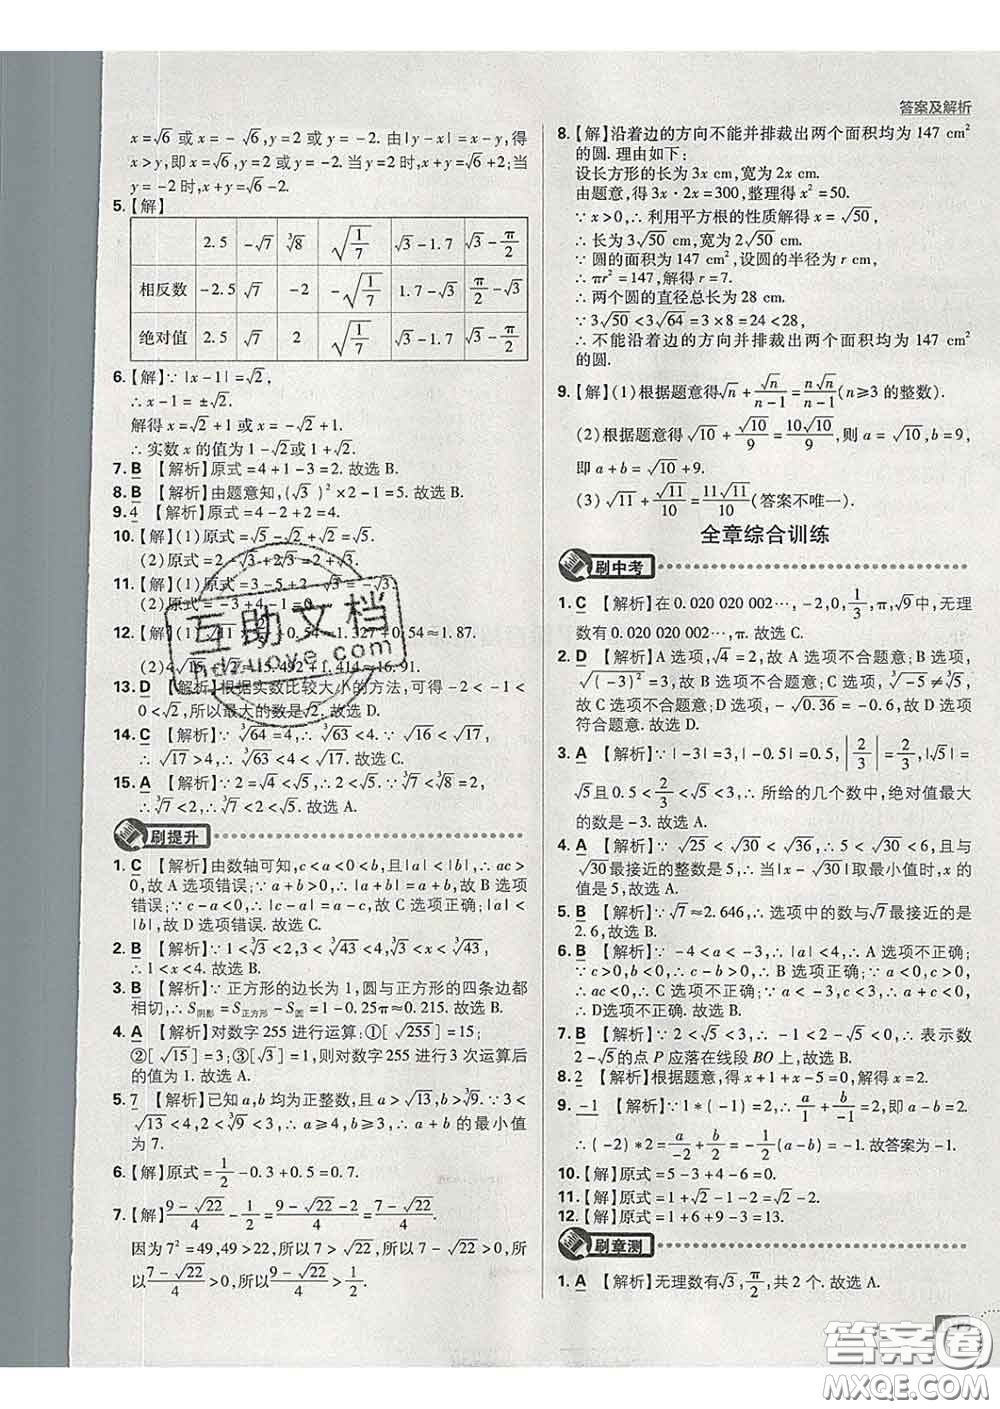 答案及解析
x=√6 或 x=-√6,y=2 或 y=-2. 由|y-x|=x-y,得
x>y,即 x=√6,y=2 或 y=-2. 当 y=2 时,x+y=√6+2;当
y=-2 时,x+y=√6-2.
5.【解】
2.5 -√7 ∛8 √(1/7) √3-1.7 √3-π/2
相反数 -2.5 √7 -2 -√(1/7) 1.7-√3 π/2-√3
绝对值 2.5 √7 2 √(1/7) √3-1.7 √3-π/2
6.【解】∵|x-1|=√2,
∴x-1=±√2.
解得 x=√2+1 或 x=-√2+1.
∴实数 x 的值为 1-√2或√2+1.
7. B 【解析】原式=4+1-3=2. 故选 B.
8. B 【解析】由题意知,(√3)²×2-1=5. 故选 B.
9. 4 【解析】原式=4-2+2=4.
10.【解】(1)原式=√5-√2+√5=2√5-√2.
(2)原式=2-√3+√3=2.
11.【解】(1)原式=3-5+2=0.
(2)原式=-3+4-1=0.
12.【解】(1)√11×
+0.54≈1.327+0.54≈1.87.
(2)4√15+√2≈15.492+1.414≈16.91.
13. D 【解析】根据实数比较大小的方法,可得-2<-1<
0<√2,所以最大的数是√2. 故选 D.
14. C 【解析】∵∛64=4,∴∛63<4. ∵√16<√17,
∴√17>4,∴∛63<4<√17. 故选 C.
15. A 【解析】∵2=√4<√5,∴2<√5. ∵∛7<∛8=2,
∴∛7<2,∴∛7<2<√5. 故选 A.
刷提升
1. C 【解析】由数轴可知,c<a<0<b,且|a|<|b|,∴ac>
0,故 A 选项错误;∵a+b>0,∴|a+b|=a+b,故 B 选项
错误;∵c-a<0,∴|c-a|=a-c,故 C 选项正确;|a|<
|b|,故 D 选项错误. 故选 C.
2. B 【解析】∵1<∛3<2,3<∛43<4,∛3<x<∛43,
∴1<x<4. 故选 B.
3. B 【解析】∵正方形的边长为 1,圆与正方形的四条边都
相切,∴S阴影=S正方形-S圆=1-0.25π≈0.215. 故选 B.
4. A 【解析】对数字 255 进行运算:①[√255]=15;
②[√15]=3;③[√3]=1,则对数字255 进行3次运算后
的值为 1. 故选 A.
5. 7 【解析】已知 a,b 均为正整数,且 a>√13,b>∛9. ∵3<
√13<4,2<∛9<3,∴a≥4,b≥3,∴a+b 的最小值
为 7.
6.【解】原式=1/2-0.3+0.5=0.7.
7.【解】(9-√22)/4-1/2=(9-√22)/4-2/4=(7-√22)/4.
因为7²=49,49>22,所以7>√22,所以7-√22>0,所
以(7-√22)/4>0,所以(9-√22)/4>1/2.
8.【解】沿着边的方向不能并排裁出两个面积均为 147 cm²
的圆. 理由如下:
设长方形的长为 3x cm,宽为 2x cm.
由题意,得 3x·2x=300,整理得 x²=50.
∵x>0,∴利用平方根的性质解得 x=√50,
∴长为 3√50 cm,宽为 2√50 cm.
∵圆的面积为 147 cm²,设圆的半径为 r cm,
∴πr²=147,解得 r=7.
∴两个圆的直径总长为 28 cm.
∵3√50<3√64=3×8=24<28,
∴不能沿着边的方向并排裁出两个面积均为 147 cm²
的圆.
9.【解】(1)根据题意得√n+√n/(n-1)=n√n/(n-1)(n≥3 的整数).
(2)根据题意得√10+√10/9=10√10/9,则 a=√10,b=9,
即 a+b=√10+9.
(3)√11+√11/10=11√11/10(答案不唯一).
全章综合训练
刷中考
1. C 【解析】在 0.020 020 002…,-2,0,1/3,π,√9中,无理
数有 0.020 020 002…,π. 故选 C.
2. D 【解析】A 选项,√4=2,故 A 选项不合题意;B 选项,
√(-3)²=3,故 B 选项不合题意;C 选项,∛-5≠∛5,
故 C 选项不合题意;D 选项,-√0.36=-0.6,故 D 选项
符合题意. 故选 D.
3. A 【解析】∵|-3|=3,|-0.5|=0.5,|2/3|=2/3,|√5|=
√5且 0.5<2/3<√5<3,∴所给的几个数中,绝对值最大
的数是-3. 故选 A.
4. A 【解析】∵√25<√30<√36,∴5<√30<6,且与
√30最接近的整数是 5,∴当|x-√30|取最小值时,x 的
值是 5,故选 A.
5. B 【解析】∵√7≈2.646,∴选项中的数与√7最接近的是
2.6,故选 B.
6. B 【解析】∵-4<a<-3,∴|a|<4,∴A 选项不正确;
∵c>0,b<0,∴c-b>0,∴B 选项正确;∵a<0,c>0,
∴ac<0,∴C 选项不正确;∵a<-3,c<3,∴a+c<0,
∴D选项不正确. 故选 B.
7. B 【解析】∵2<√5<3,∴-1<2-√5<0,∴表示数
2-√5的点 P 应落在线段 BO 上,故选 B.
8. 2 【解析】根据题意,得 x+1+x-5=0,解得 x=2.
9. -1 【解析】∵1*(-1)=2,∴a/1+b/-1=2,即 a-b=2.
∴(-2)*2=a/-2+b/2=-1/2(a-b)=-1. 故答案为-1.
10.【解】原式=5-3+4-6=0.
11.【解】原式=1+√2-1-√2=0.
12.【解】原式=1+6+9-3=13.
刷章测
1. A 【解析】无理数有√3,π/2,共 2 个. 故选 A.
互助文档
hdzuoye.com
答案圈
MXQE.COM